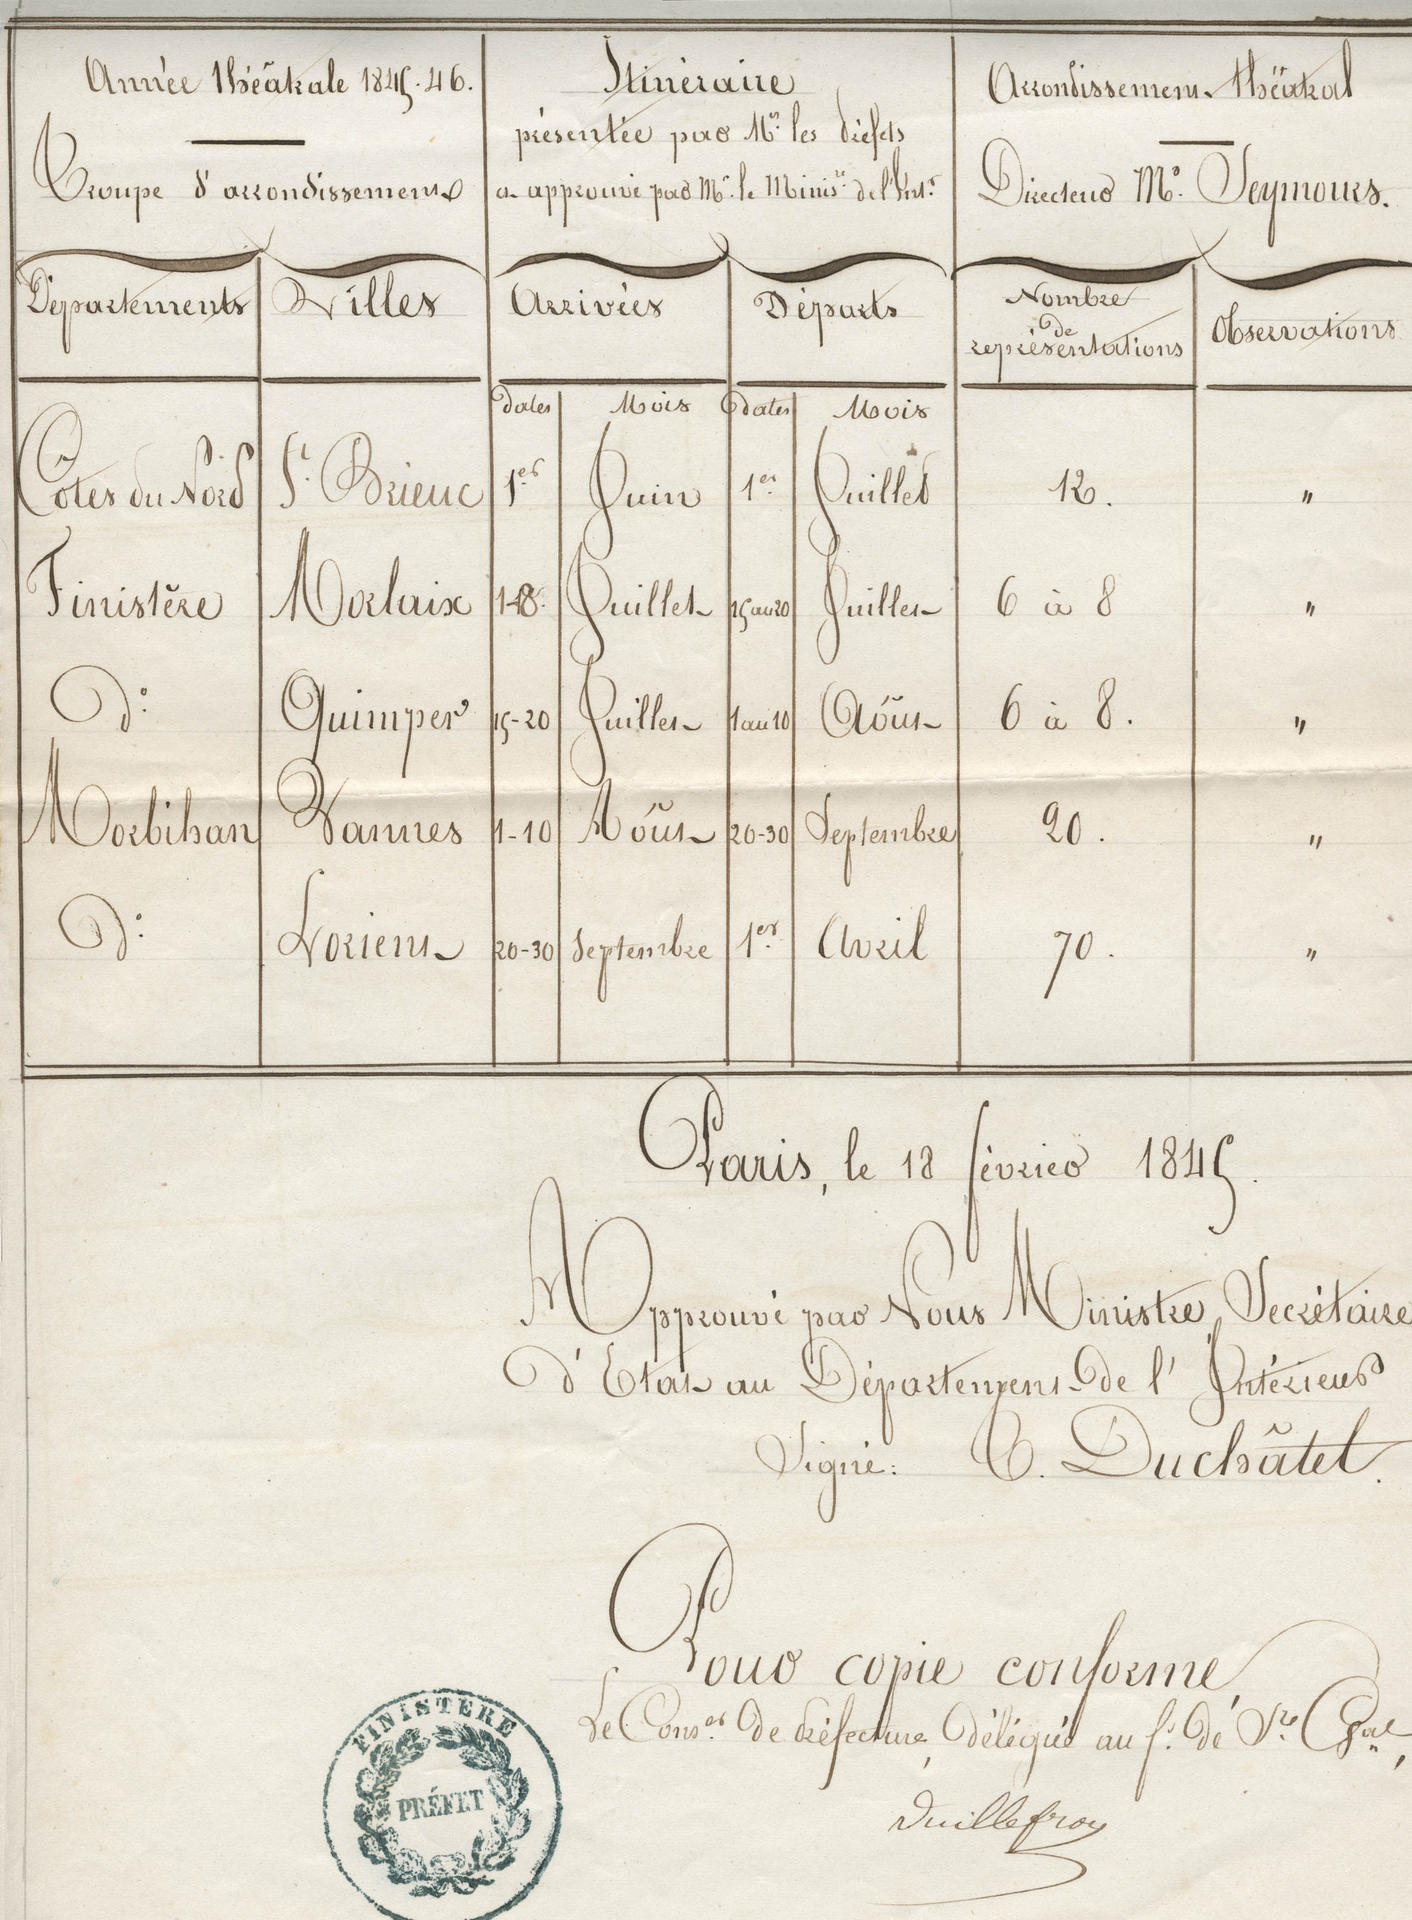 Année théâtrale 1845-46.
Troupe d'arrondissement
Itinéraire
présentée par Mrs. les Préfets
et approuvé par Mr. le Minisre. de l'Intr.
Arrondissement théâtral
Directeur Mr. Seymours.
Départements Villes Arrivées Départs Nombre de représentations Observations
dates Mois dates Mois
Côtes du Nord St. Brieuc 1er Juin 1er Juillet 12. "
Finistère Morlaix Juillet 15 au 20 Juillet 6 à 8 "
do. Quimper 15-20 Juillet 1 au 10 Août 6 à 8. "
Morbihan Vannes 1-10 Août 20-30 Septembre 20. "
do. Lorient 20-30 Septembre 1er Avril 70. "
Paris, le 18 février 1845.
Approuvé par Nous Ministre Secrétaire
d'Etat au Département de l'Intérieur
Signé: T. Duchâtel.
Pour copie conforme
Le Conser. de Préfecture, délégué au f. de Sre. Gral,
Duillefroy
FINISTERE
PRÉFET